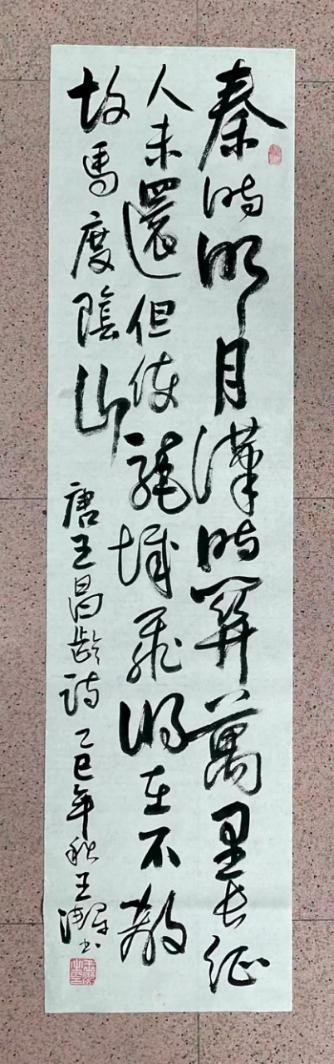 秦時明月漢時關萬里長征
人未還但使龍城飛將在不教
胡馬度陰山
唐王昌齡詩乙巳年秋王書